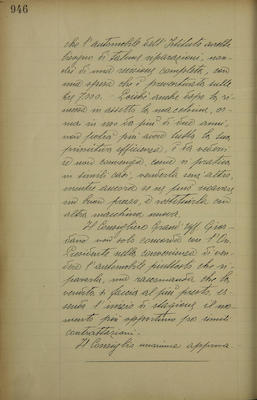 946
che l'automobile dell'Istituto avrebbe
bisogno di talune riparazioni, non
di una revisione completa, con
una spesa che è preventivata sulle
£ 7.000. - Poiché anche dopo la ri
messa in assetto la macchina, or
mai in uso da più di due anni,
non potrà più avere tutta la sua
primitiva efficienza, è da vedere
se non convenga, come si pratica
in simili casi, venderla senz'altro,
mentre ancora se ne può ricavare
un buon prezzo, e sostituirla con
altra macchina nuova.
Il Consigliere Grand' Uff. Gior
dano non solo concorda con l'On.
Presidente nella convenienza di ven
dere l'automobile piuttosto che ri
pararla, ma raccomanda che la
vendita si faccia al più presto, es
sendo l'inizio di stagione il mo
mento più opportuno per simili
contrattazioni.
Il Consiglio unanime approva